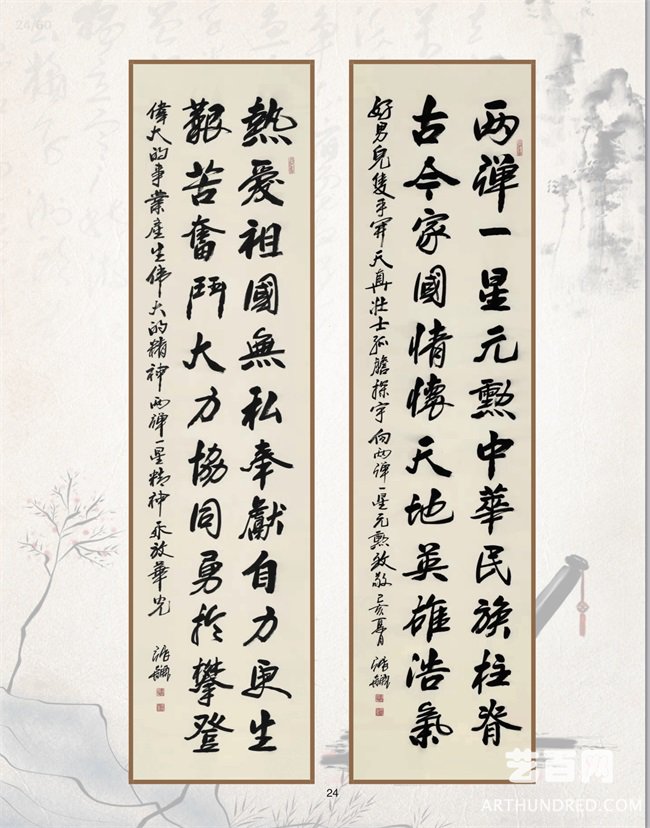 24/60
两弹一星元勲中華民族柱脊
古今家國情懷天地英雄浩氣
好男兒隻手開天真壯士孤膽探宇向两弹一星元勲致敬己亥夏月
熱愛祖國無私奉獻自力更生
艱苦奮鬥大力協同勇於攀登
偉大的事業產生偉大的精神两弹一星精神永放華光
24
艺百网
ARTHUNDRED.COM